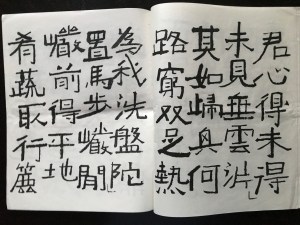 君心得未得
未見垂雲沜」
其如歸興何
路窮双足熱
為我洗盤陀」
置馬步巘間
巘前得平地
肴蔬取行篚